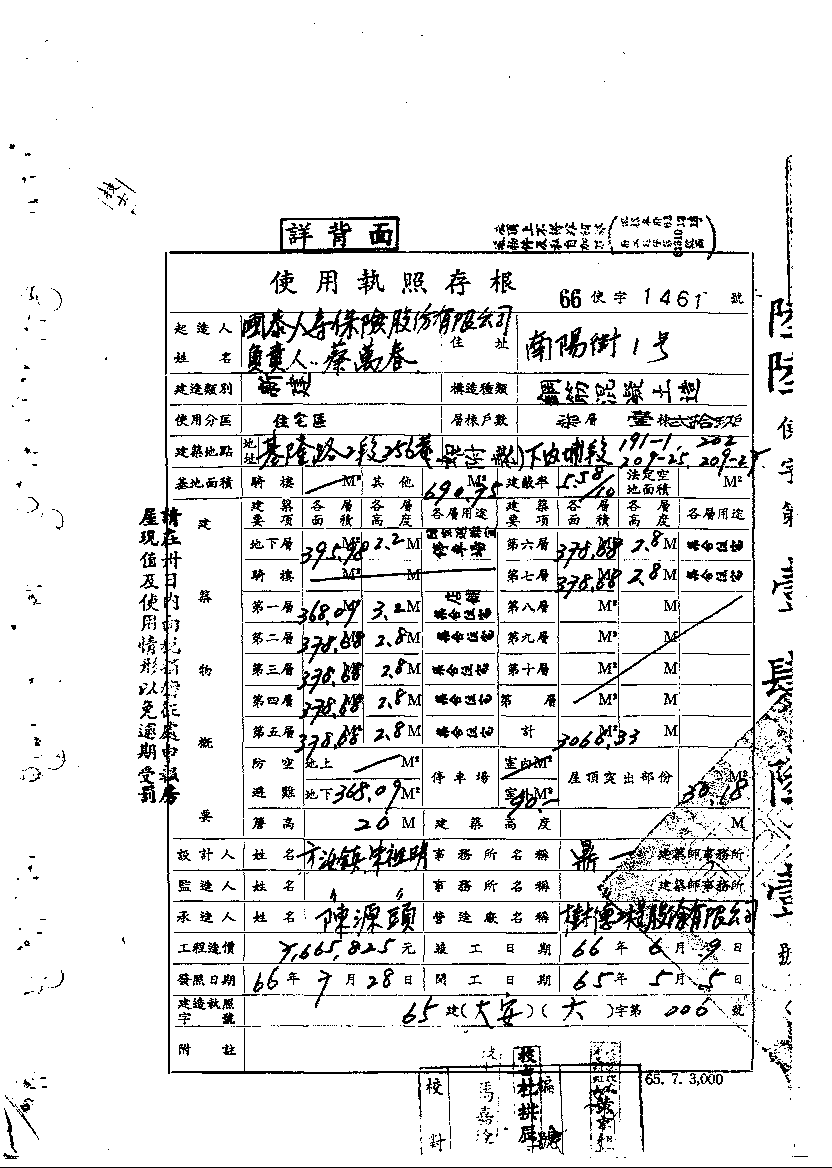 詳背面
使用執照存根
66 使字 1461 號
起造人姓名 國泰人壽保險股份有限公司 負責人:蔡萬春 住址 南陽街1号
建造類別 新建 構造種類 鋼筋混凝土造
使用分區 住宅區 層棟戶數 柒層 壹棟貳拾玖戶
建築地點 地址 基隆路2段256巷 下內埔段 191-1, 202 209-25, 209-27
基地面積 騎樓 M² 其他 690.75 M² 建蔽率 5.58/10 法定空地面積 M²
建築物概要 建築要項 各層面積 各層高度 各層用途 建築要項 各層面積 各層高度 各層用途
地下層 395.98 M² 2.2 M 停車場 第六層 378.68 M² 2.8 M 集合住宅
騎樓 M² M 第七層 378.68 M² 2.8 M 集合住宅
第一層 368.09 M² 3.2 M 店舖 集合住宅 第八層 M² M
第二層 378.68 M² 2.8 M 集合住宅 第九層 M² M
第三層 378.68 M² 2.8 M 集合住宅 第十層 M² M
第四層 378.68 M² 2.8 M 集合住宅 第 層 M² M
第五層 378.68 M² 2.8 M 集合住宅 計 3068.33 M²
防空避難 地上 M² 地下 368.09 M² 停車場 室內 M² 室外 90.- M² 屋頂突出部份 30.18 M²
簷高 20 M 建築高度 M
設計人 姓名 事務所名稱 鼎一 建築師事務所
監造人 姓名 〃 事務所名稱 〃 建築師事務所
承造人 姓名 陳源頭 營造廠名稱 樹德工程股份有限公司
工程造價 7,665,825 元 竣工日期 66 年 6 月 9 日
發照日期 66 年 7 月 28 日 開工日期 65 年 5 月 5 日
建造執照字號 65 建(大安)(大)字第 006 號
附註
請在卅日內向稅捐稽征處申報房
屋現值及使用情形以免逾期受罰
校對
65. 7. 3,000